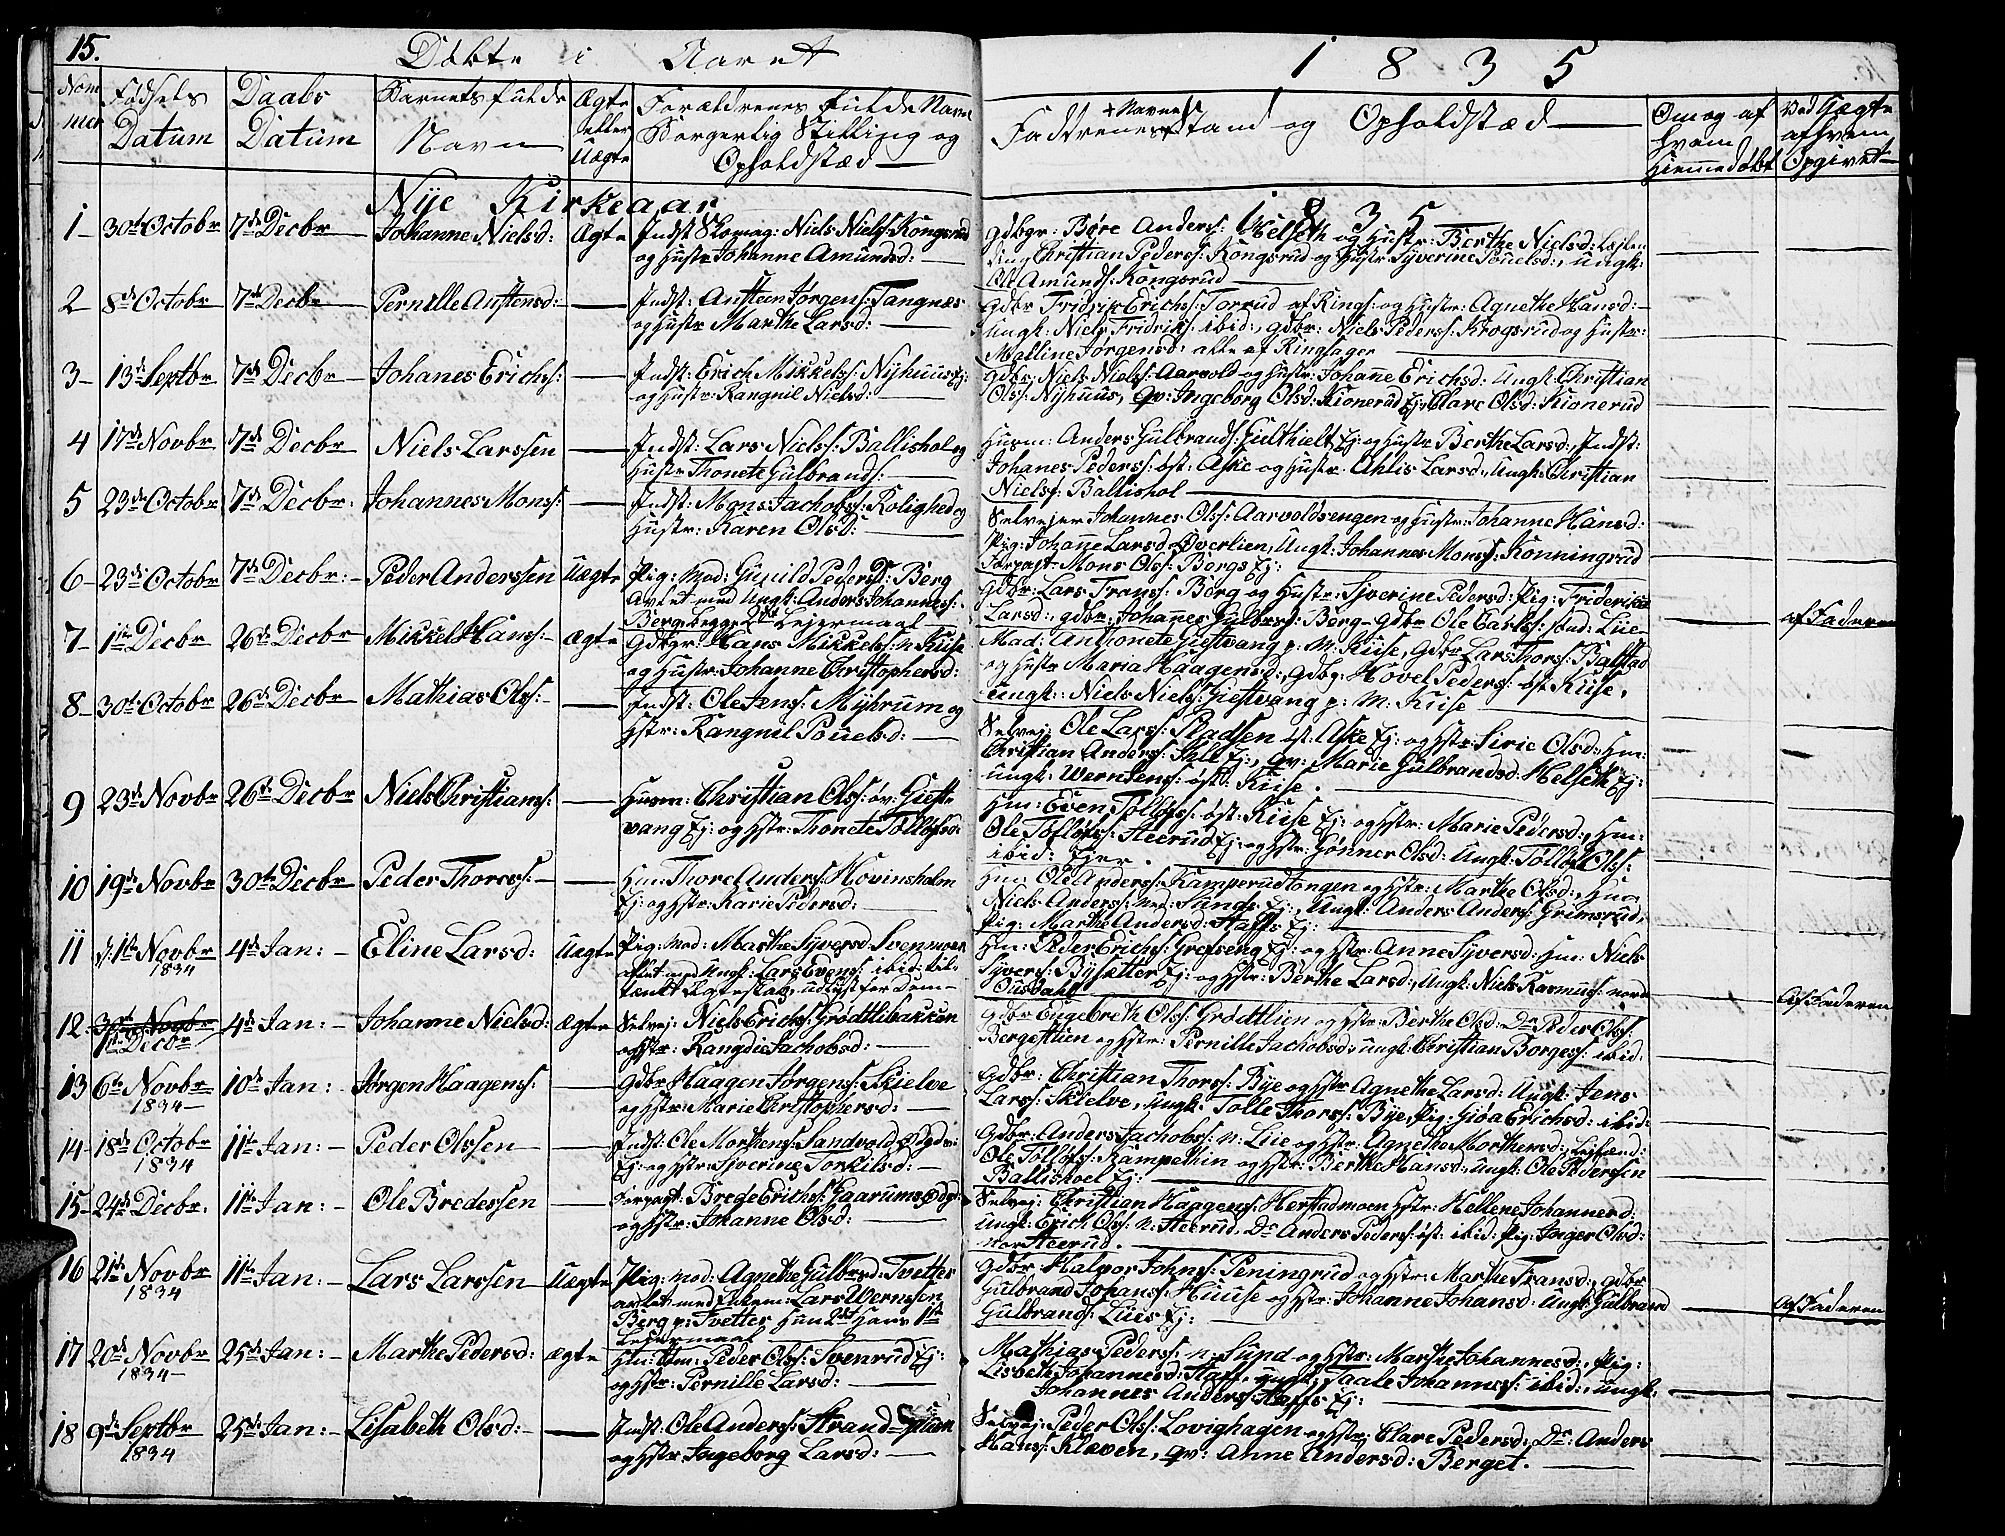 15.
Døbte i Aaret 1835
Nom mer
Fødsels Datum
Daabs Datum
Barnets fulde Navn
Ægte eller Uægte
Forældrenes fulde Navne Borgerlig Stilling og Opholdstæd
Faddrenes Navne Stand og Opholdstæd
Om og af hvem Hiemmedøbt
Ved Uægte af hvem Opgivet
Nye Kirkeaar 1835
1 30te Octobr 7de Decbr Johanne Nielsd: Ægte Indst Skomag: Niels Niels: Kongsrud
og Hustr Johanne Amundsd:
Gdbgr: Børe Anders: Helseth og Hustr: Berthe Nielsd:
Christian Peders: Kongsrud og Hustr Syverine Pouelsd:, Ungk:
Ole Amunds: Kongsrud
2 8de Octobr 7de Decbr Pernille Austensd: Indst: Austein Jørgens: Tangnæs
og Hustr Marthe Larsd:
Gdbr Fridrik Erichs: Torrud af Rings: og Hustr: Agnethe Hansd:
Ungk: Niels Fridrik: ibid:, Gdbr: Niels Peders: Krogsrud og Hustr:
Malline Jørgensd: alle af Ringsager
3 13de Septbr 7de Decbr Johanes Erichs: Indst: Erich Mikkels: Nyhuus Ej:
og Hustr: Rangnil Nielsd:
Gdbr: Niels Niels: Aarvold og Hustr: Johane Erichsd: Ungk: Christian
Ols: Nyhuus, Qv: Ingeborg Olsd: Kionerud Ej: Clare Olsd: Kionerud
4 17de Novbr 7de Decbr Niels Larssen Indst: Lars Niels: Ballishol og
Hustr Thonete Gulbrands:
Huusm: Anders Gulbrands: Ej: og Hustr Berthe Larsd:, Indst:
Johanes Peders: øst: Aske og Hustr Ahlis Larsd:, Ungk: Christian
Niels: Ballishol
5 23de Octobr 7de Decbr: Johannes Mons: Indst: Mons Jachobs: Rolighed og
Hustr: Karen Olsd:
Selvejer Johannes Ols: Aarvoldsengen og Hustr: Johanne Hansd:
Pig: Johane Larsd: Øverlien, Ungk: Johannes Mons: Konningrud
Forpagt: Mons Ols: Bergs Ej:
6 23de Octobr 7de Decbr: Peder Anderssen Uægte Pig: Mod: Gunild Pedersd: Berg
Avlet med Ungk: Anders Johannes:
Berg begge 2det Lejermaal
Gdbr: Lars Frans: Berg og Hustr: Syverine Pedersd: Pig: Friderike
Larsd:, Gdbr: Johanes Gulbrs: Berg Gdbr Ole Earls: Lüe
af Faderen
7 1te Decbr 26de Decbr Mikkel Hans: Ægte Gdbgr: Hans Mikkels: n: Kise
og Hustr: Johanne Christophersd:
Mad: Anthonete Giestvang p: M: Kiise, Gdbr Lars Thors: Balstad
og Hustr Maria Haagensd:, Gdbg: Hovel Peders: øst Kiise,
Ungk: Niels Niels: Giestvang p: M: Kiise
8 30te Octobr 26de Decbr Mathias Ols: Indst: Ole Jens: Myhrum og
Hstr: Rangnil Pouelsd:
Selvej: Ole Lars: Pladsen øst: Aske Ej: og Hstr Sirie Olsd: Hm:
Christian Anders: Ej:, Qv: Marie Gulbrandsd: Helseth Ej:
Ungk: Wern Jens: øst: Kiise.
9 23de Novbr 26de Decbr Niels Christians: Huusm: Christian Ols: øv: Giest
vang Ej: og Hstr: Thonete Tollofsd:
Hm: Even Tollofs: øst: Kiise Ej: og Hstr: Marie Pedersd:, Hm:
Ole Tollofs: Steerud Ej: og Hstr: Gonner Olsd: Ungk: Tollof Ols:
ibid: Ejer.
10 19de Novbr 30te Decbr Peder Thores: Hm: Thore Anders: Hovinsholm
Ej: og Hstr: Karie Pedersd:
Hm: Ole Anders: Kamperudtangen og Hstr: Marthe Olsd:, Hm:
Niels Anders: ned: Sunds Ej:, Ungk: Anders Anders: Grimsrud,
Pig: Marthe Andersd: Staffs Ej:
11 1te Novbr 1834 4de Jan: Eline Larsd: Uægte Pig: Mod: Marthe Syversd: Svenmoen
avlet med Ungk: Lars Evens: ibid: til-
tænkt Egteskab, udlyst for dem
Hm: Peder Erichs: Grefseng Ej: og Hstr: Anne Syversd: Hm: Niels
Syvers: Bysætter Ej: og Hstr: Berthe Larsd:, Ungk: Niels Rasmus: nord
Ousdahl
Af Faderen
12 1te Decbr 4de Jan: Johanne Nielsd: Ægte Selvej: Niels Erichs: Grødtlibakken
og Hstr: Rangdie Jachobsd:
Gdbr Engebreth Ols: Grødtlien og Hstr: Berthe Olsd: Do Peder Ols:
Bergestuen og Hstr: Pernille Jachobsd: Ungk: Christian Borges: ibid:
13 6te Novbr 1834 10de Jan: Jørgen Haagens: Gdbr Haagen Jørgens: Skielve
og Hstr: Marie Christophersd:
Gdbr: Christian Thors: Bye og Hstr Agnethe Larsd: Ungk: Jens
Lars: Skielve, Ungk: Tolle Thors: Bye, Pig: Giøa Erichsd: ibid:
14 18de Octobr 1834 11te Jan: Peder Olssen Indst: Ole Morthens: Sandvold Ødgr:
Ej: og Hstr: Syverine Torkilsd:
Gdbr: Anders Jachobs: n: Lüe og Hstr: Agnethe Morthensd:
Ole Tollofs: Kampethin og Hstr: Berthe Hansd:, Ungk: Ole Pederssen
Ballishoel Ej:
15 24de Decbr: 11te Jan: Ole Bredessen Forpagt: Brede Erichs: Gaarums Ødgr:
og Hstr: Johanne Olsd:
Selvej: Christian Haagens: Herstadmoen Hstr: Hellene Johannesd:
Ungk: Erich Ols: n: Steerud, Do Anders Peders: øst: ibid: Pig: Inger Olsd:
nor Steerud.
16 21de Novbr 1834 11te Jan: Lars Larssen Uægte Pig: Mod: Agnethe Gulbrsd: Tvetter
avlet med Enkem: Lars Wernssen
Berg p: Tvetter hun 2det hans 1ste
Lejermaal
Gdbr Halvor Johns: Peningrud og Hstr: Marthe Fransd:, Gdbr
Gulbrand Johans: Huuse og Hstr: Johanne Johansd: Ungk: Gulbrand
Gulbrands: Lües Ej:
Af Faderen
17 20de Novbr 1834 25de Jan: Marthe Pedersd: Ægte Peder Ols: Svenrud Ej:
og Hstr: Pernille Larsd:
Mathias Peders: n: Sund og Hstr: Marthe Johannesd:, Pig:
Lisbeth Johannesd: Staff, Ungk: Taale Johannes: ibid:, Ungk:
Johannes Anders: Staffs Ej:
18 9de Septbr 1834 25de Jan: Lisabeth Olsd: Indst: Ole Anders: Strand
og Hstr Ingeborg Larsd:
Selvej: Peder Ols: Lovighagen og Hstr: Clare Pedersd: Do: Anders
Hans: Klæven, Qv: Anne Andersd: Berget.